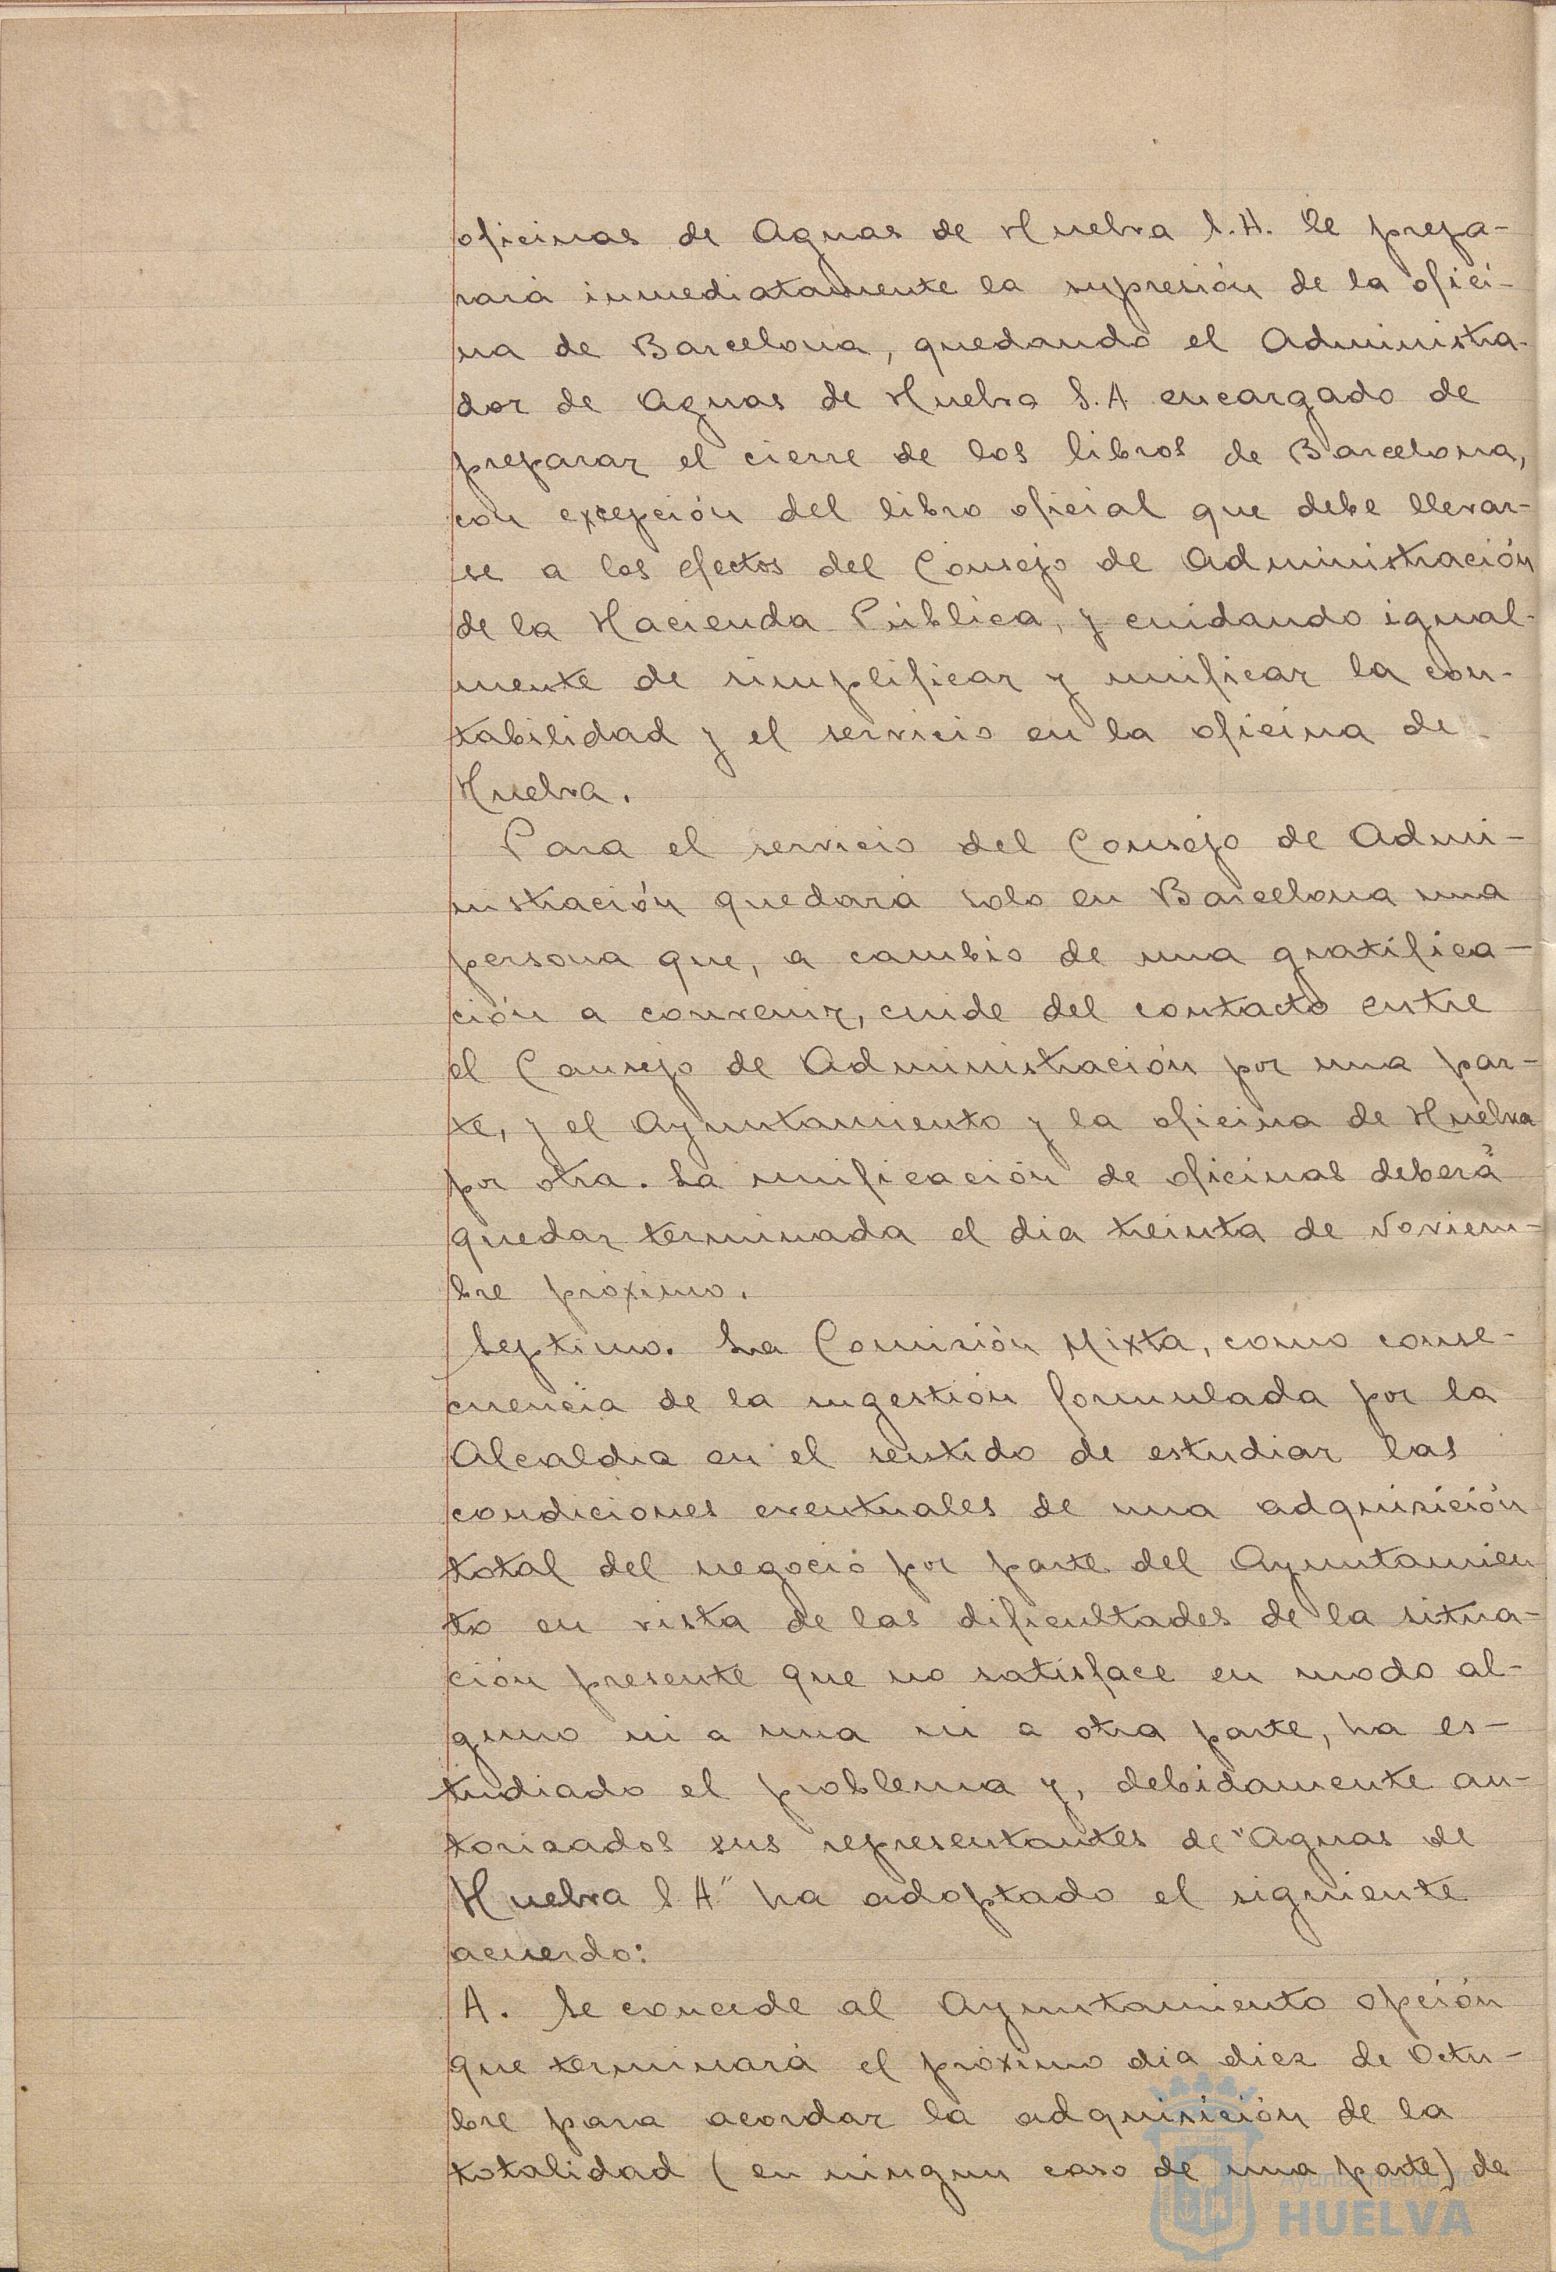 oficinas de Aguas de Huelva S.A. Se prepa-
rará inmediatamente la supresión de la ofici-
na de Barcelona, quedando el Administra-
dor de Aguas de Huelva S.A encargado de
preparar el cierre de los libros de Barcelona,
con excepción del libro oficial que debe llevar-
se a los efectos del Consejo de Administración
de la Hacienda Pública, y cuidando igual-
mente de simplificar y unificar la con-
tabilidad y el servicio en la oficina de
Huelva.
Para el servicio del Consejo de Admi-
nistración quedará solo en Barcelona una
persona que, a cambio de una gratifica-
ción a convenir, cuide del contacto entre
el Consejo de Administración por una par-
te, y el Ayuntamiento y la oficina de Huelva
por otra. La unificación de oficinas deberá
quedar terminada el dia treinta de Noviem-
bre próximo.
Septimo. La Comisión Mixta, como conse-
cuencia de la sugestión formulada por la
Alcaldia en el sentido de estudiar las
condiciones eventuales de una adquisición
total del negocio por parte del Ayuntamien
to en vista de las dificultades de la situa-
ción presente que no satisface en modo al-
guno ni a una ni a otra parte, ha es-
tudiado el problema y, debidamente au-
torizados sus representantes de "Aguas de
Huelva S A" ha adoptado el siguiente
acuerdo:
A. Se concede al Ayuntamiento opción
que terminará el próximo dia diez de Octu-
bre para acordar la adquisición de la
totalidad (en ningun caso de una parte) de
Ayuntamiento de
HUELVA